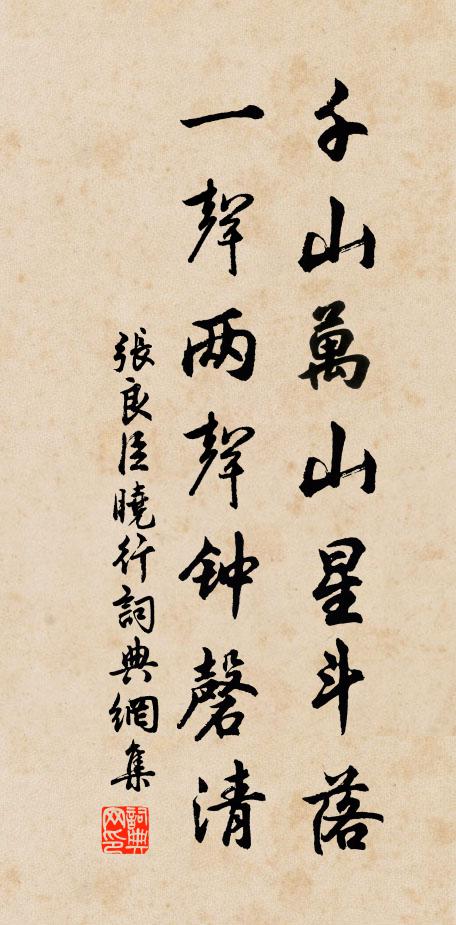 千山萬山星斗落
一聲两聲钟磬清
張良臣曉行詞典網集
詞典网印